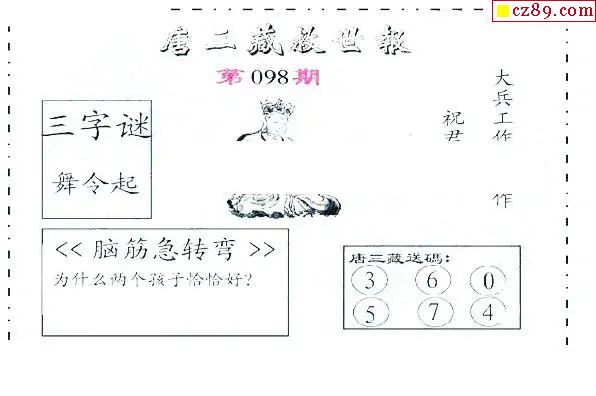 cz89.com
唐二藏救世报
第098期
大兵工作
祝君
作
三字谜
舞令起
<< 脑筋急转弯 >>
为什么两个孩子恰恰好?
唐三藏送码:
3 6 0
5 7 4